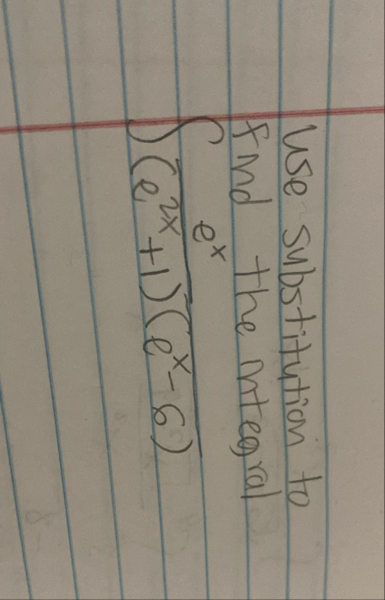 use substitution to
find the integral
∫ e^x / (e^2x + 1)(e^x - 6)